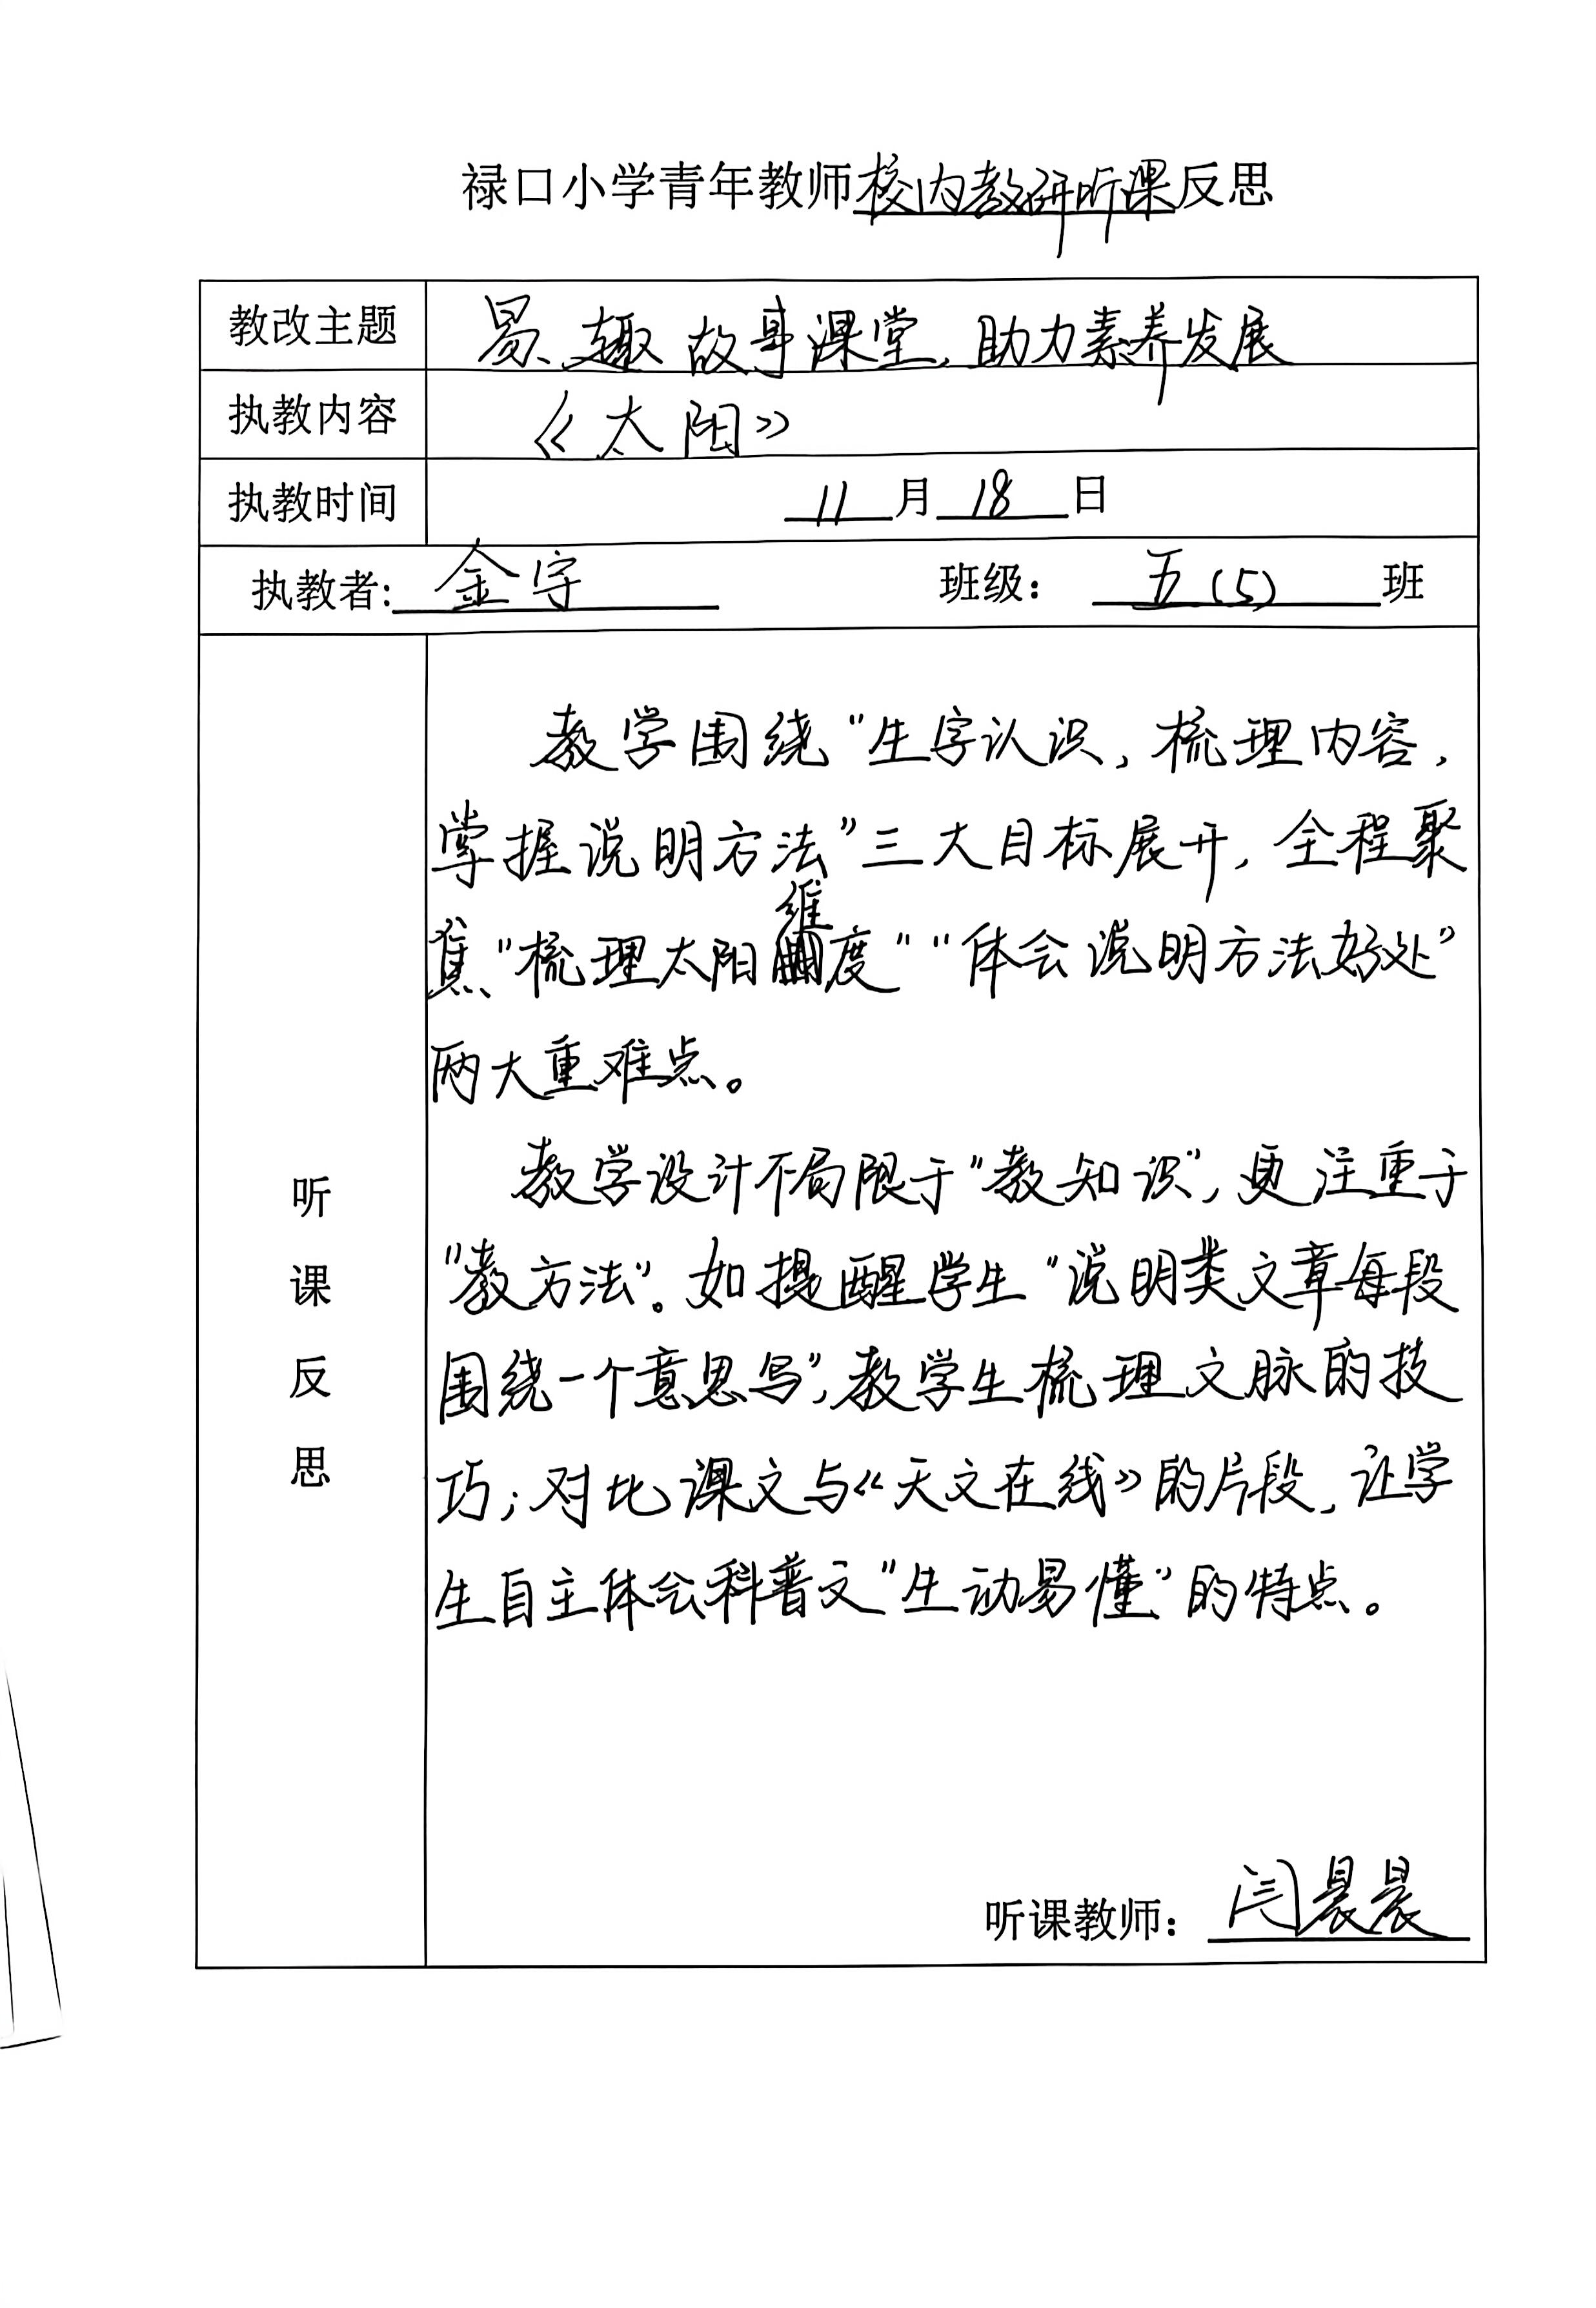 禄口小学青年教师校内教研听课反思
教改主题 易、趣故事课堂,助力素养发展
执教内容 《太阳》
执教时间 11月18日
执教者:金守 班级:五(5)班
听课反思
教学围绕“生字认识,梳理内容,
掌握说明方法”三大目标展开,全程聚
焦“梳理太阳维度”“体会说明方法好处”
两大重难点。
教学设计不局限于“教知识”,更注重于
“教方法”。如提醒学生“说明类文章每段
围绕一个意思写”,教学生梳理文脉的技
巧;对比课文与《天文在线》的片段,让学
生自主体会科普文“生动易懂”的特点。
听课教师:闫晨晨